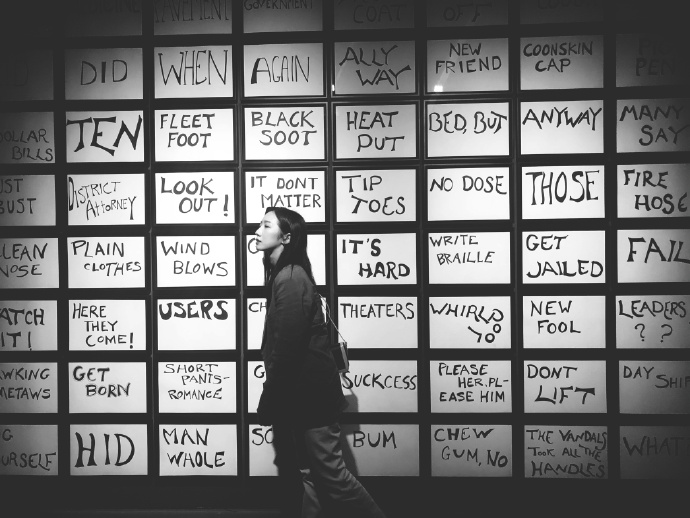 AVEMENT
GOVERNMENT
COAT
OFF
DID
WHEN
AGAIN
ALLY
WAY
NEW
FRIEND
COONSKIN
CAP
OLLAR
BILLS
TEN
FLEET
FOOT
BLACK
SOOT
HEAT
PUT
BED, BUT
ANYWAY
MANY
SAY
UST
BUST
DISTRICT
ATTORNEY
LOOK
OUT!
IT DONT
MATTER
TIP
TOES
NO DOSE
THOSE
FIRE
HOSE
LEAN
NOSE
PLAIN
CLOTHES
WIND
BLOWS
IT'S
HARD
WRITE
BRAILLE
GET
JAILED
FAIL
ATCH
IT!
HERE
THEY
COME!
USERS
CH
THEATERS
WHIRLPO
OL
NEW
FOOL
LEADERS
? ?
WKING
METAWS
GET
BORN
SHORT
PANTS-
ROMANCE
G
SUCKCESS
PLEASE
HER, PL-
EASE HIM
DONT
LIFT
DAY SHIF
G
URSELF
HID
MAN
WHOLE
SO
BUM
CHEW
GUM, NO
THE VANDALS
TOOK ALL THE
HANDLES
WHAT